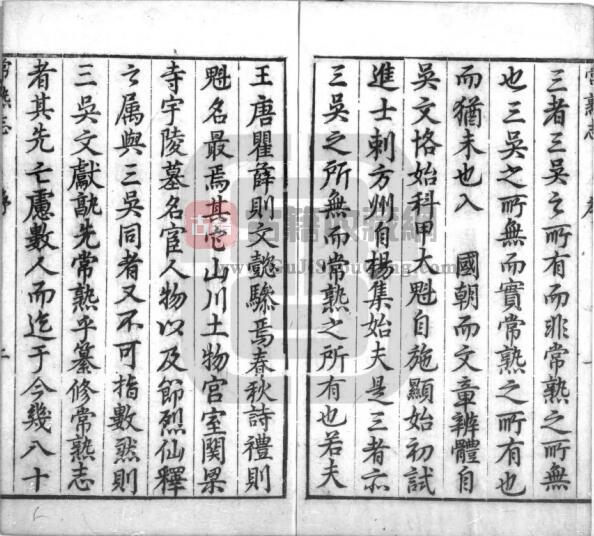 三者三吳之所有而非常熟之所無
也三吳之所無而實常熟之所有也
而猶未也入　國朝而文章辨體自
吳文恪始科甲大魁自施顯始初試
進士刺方州自楊集始夫是三者亦
三吳之所無而常熟之所有也若夫
王唐瞿薛則文懿驂焉春秋詩禮則
魁名最焉其它山川土物宮室関梁
寺宇陵墓名宦人物以及節烈仙釋
之属與三吳同者又不可指數然則
三吳文獻孰先常熟乎纂修常熟志
者其先亡慮數人而迄于今幾八十